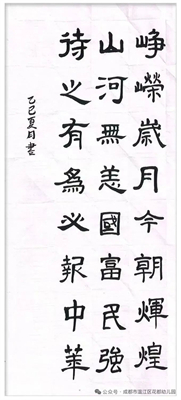 峥嶸歲月今朝輝煌
山河無恙國富民強
待之有為必報中華
乙巳夏月書
公众号·成都市温江区花都幼儿园